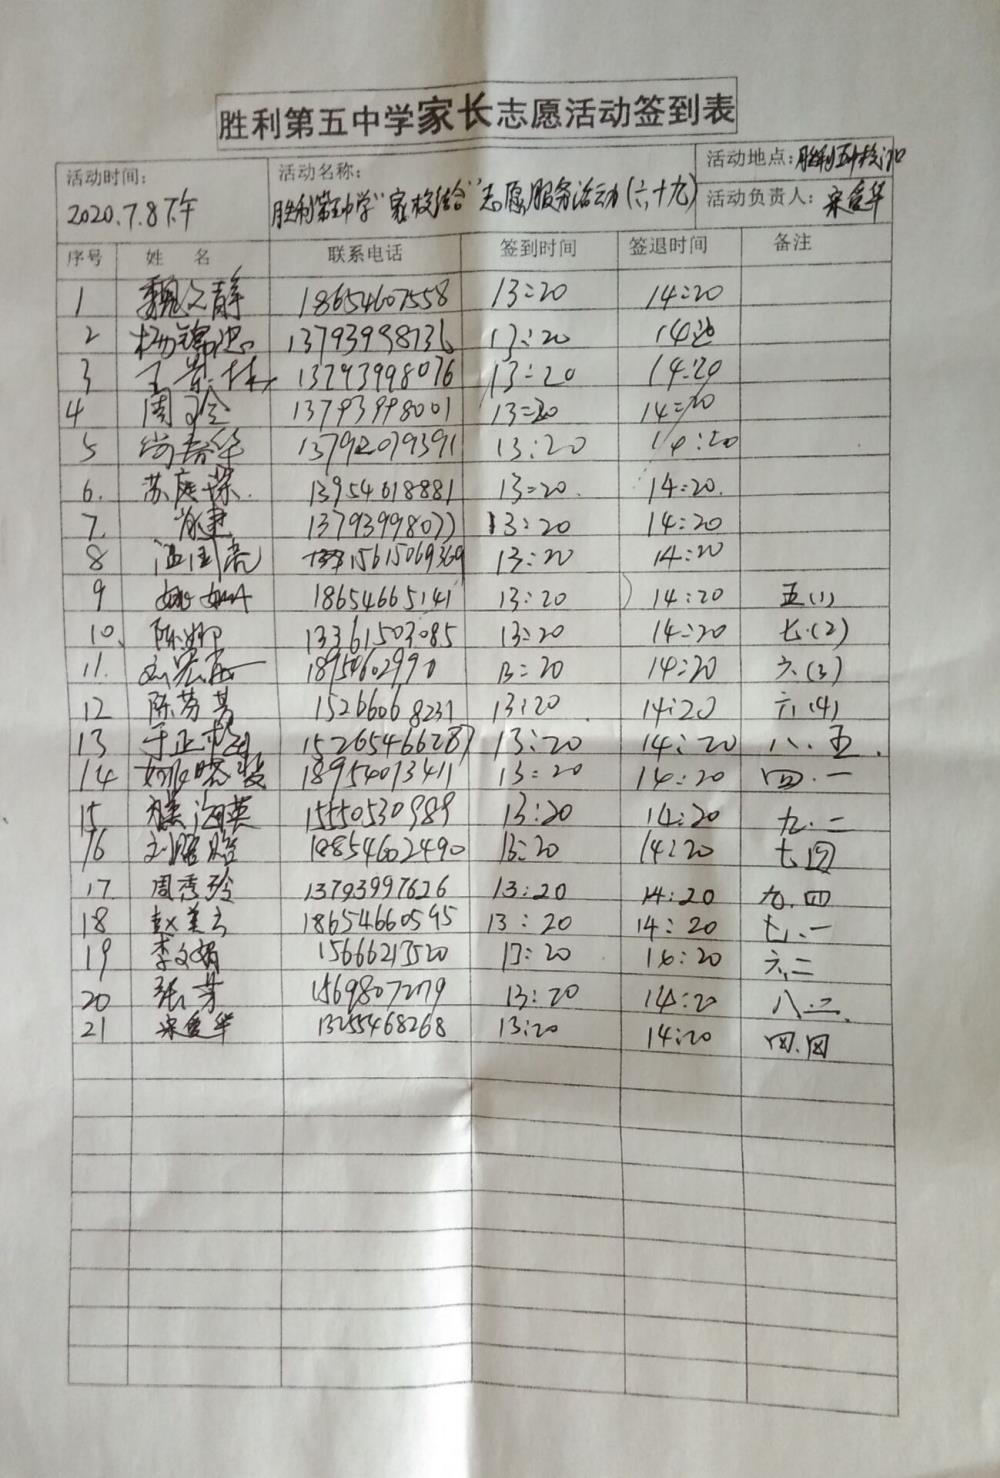 胜利第五中学家长志愿活动签到表
活动时间: 活动名称: 活动地点: 胜利五中校门口
2020.7.8下午 胜利第五中学"家校结合"志愿服务活动(六十九) 活动负责人: 宋爱华
序号 姓名 联系电话 签到时间 签退时间 备注
1 魏文静 18654607558 13:20 14:20
2 杨锦忠 13793998736 13:20 14:20
3 13793998076 13:20 14:20
4 周玲 13793998001 13=20 14=20
5 尚春华 13792079391 13:20 14:20
6. 苏庭荣. 13954618881 13=20. 14:20.
7. 肖建 13793998077 13:20 14:20
8 温国亮 15615069369 13:20 14:20
9 18654665141 13:20 14:20 五(1)
10、 陈娜 13361503085 13:20 14:20 七.(2)
11. 13:20 14:20 六(3)
12 陈芳芳 15266068231 13:20 14:20 六.(4)
13 于正 15265466287 13:20 14:20 八.五.
14 18954013411 13:20 14:20 四.一
15 海英 15550530989 13:20 14:20 九.二
16 刘 18854602490 13:20 14:20 七四
17 周秀玲 13793997626 13:20 14:20 九.四
18 赵美云 18654660595 13:20 14:20 七.一
19 李文娟 15666213520 13:20 16:20 六.二
20 张芳 13:20 14:20 八.二.
21 宋爱华 13255468268 13:20 14:20 四.四